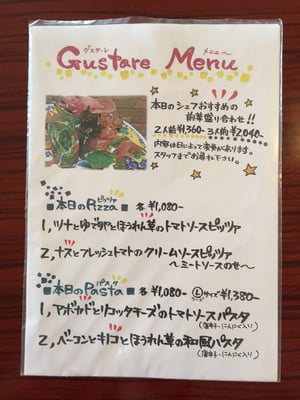 グスターレ メニュ〜
Gustare Menu
本日のシェフおすすめの
前菜盛り合わせ!!
2人前¥1,360- 3人前¥2,040-
内容は日によって変更があります。
スタッフまでお尋ね下さい。
ピッツァ
■本日のPizza■ 各¥1,080-
1,ツナとゆで卵とほうれん草のトマトソースピッツァ
2,ナスとフレッシュトマトのクリームソースピッツァ
〜ミートソースのせ〜
パスタ
■本日のPasta■ 各¥1,080- Ⓛサイズ¥1,380-
1,アボカドとリコッタチーズのトマトソースパスタ
(唐辛子・にんにく入り)
2,ベーコンとキノコとほうれん草の和風パスタ
(唐辛子・にんにく入り)